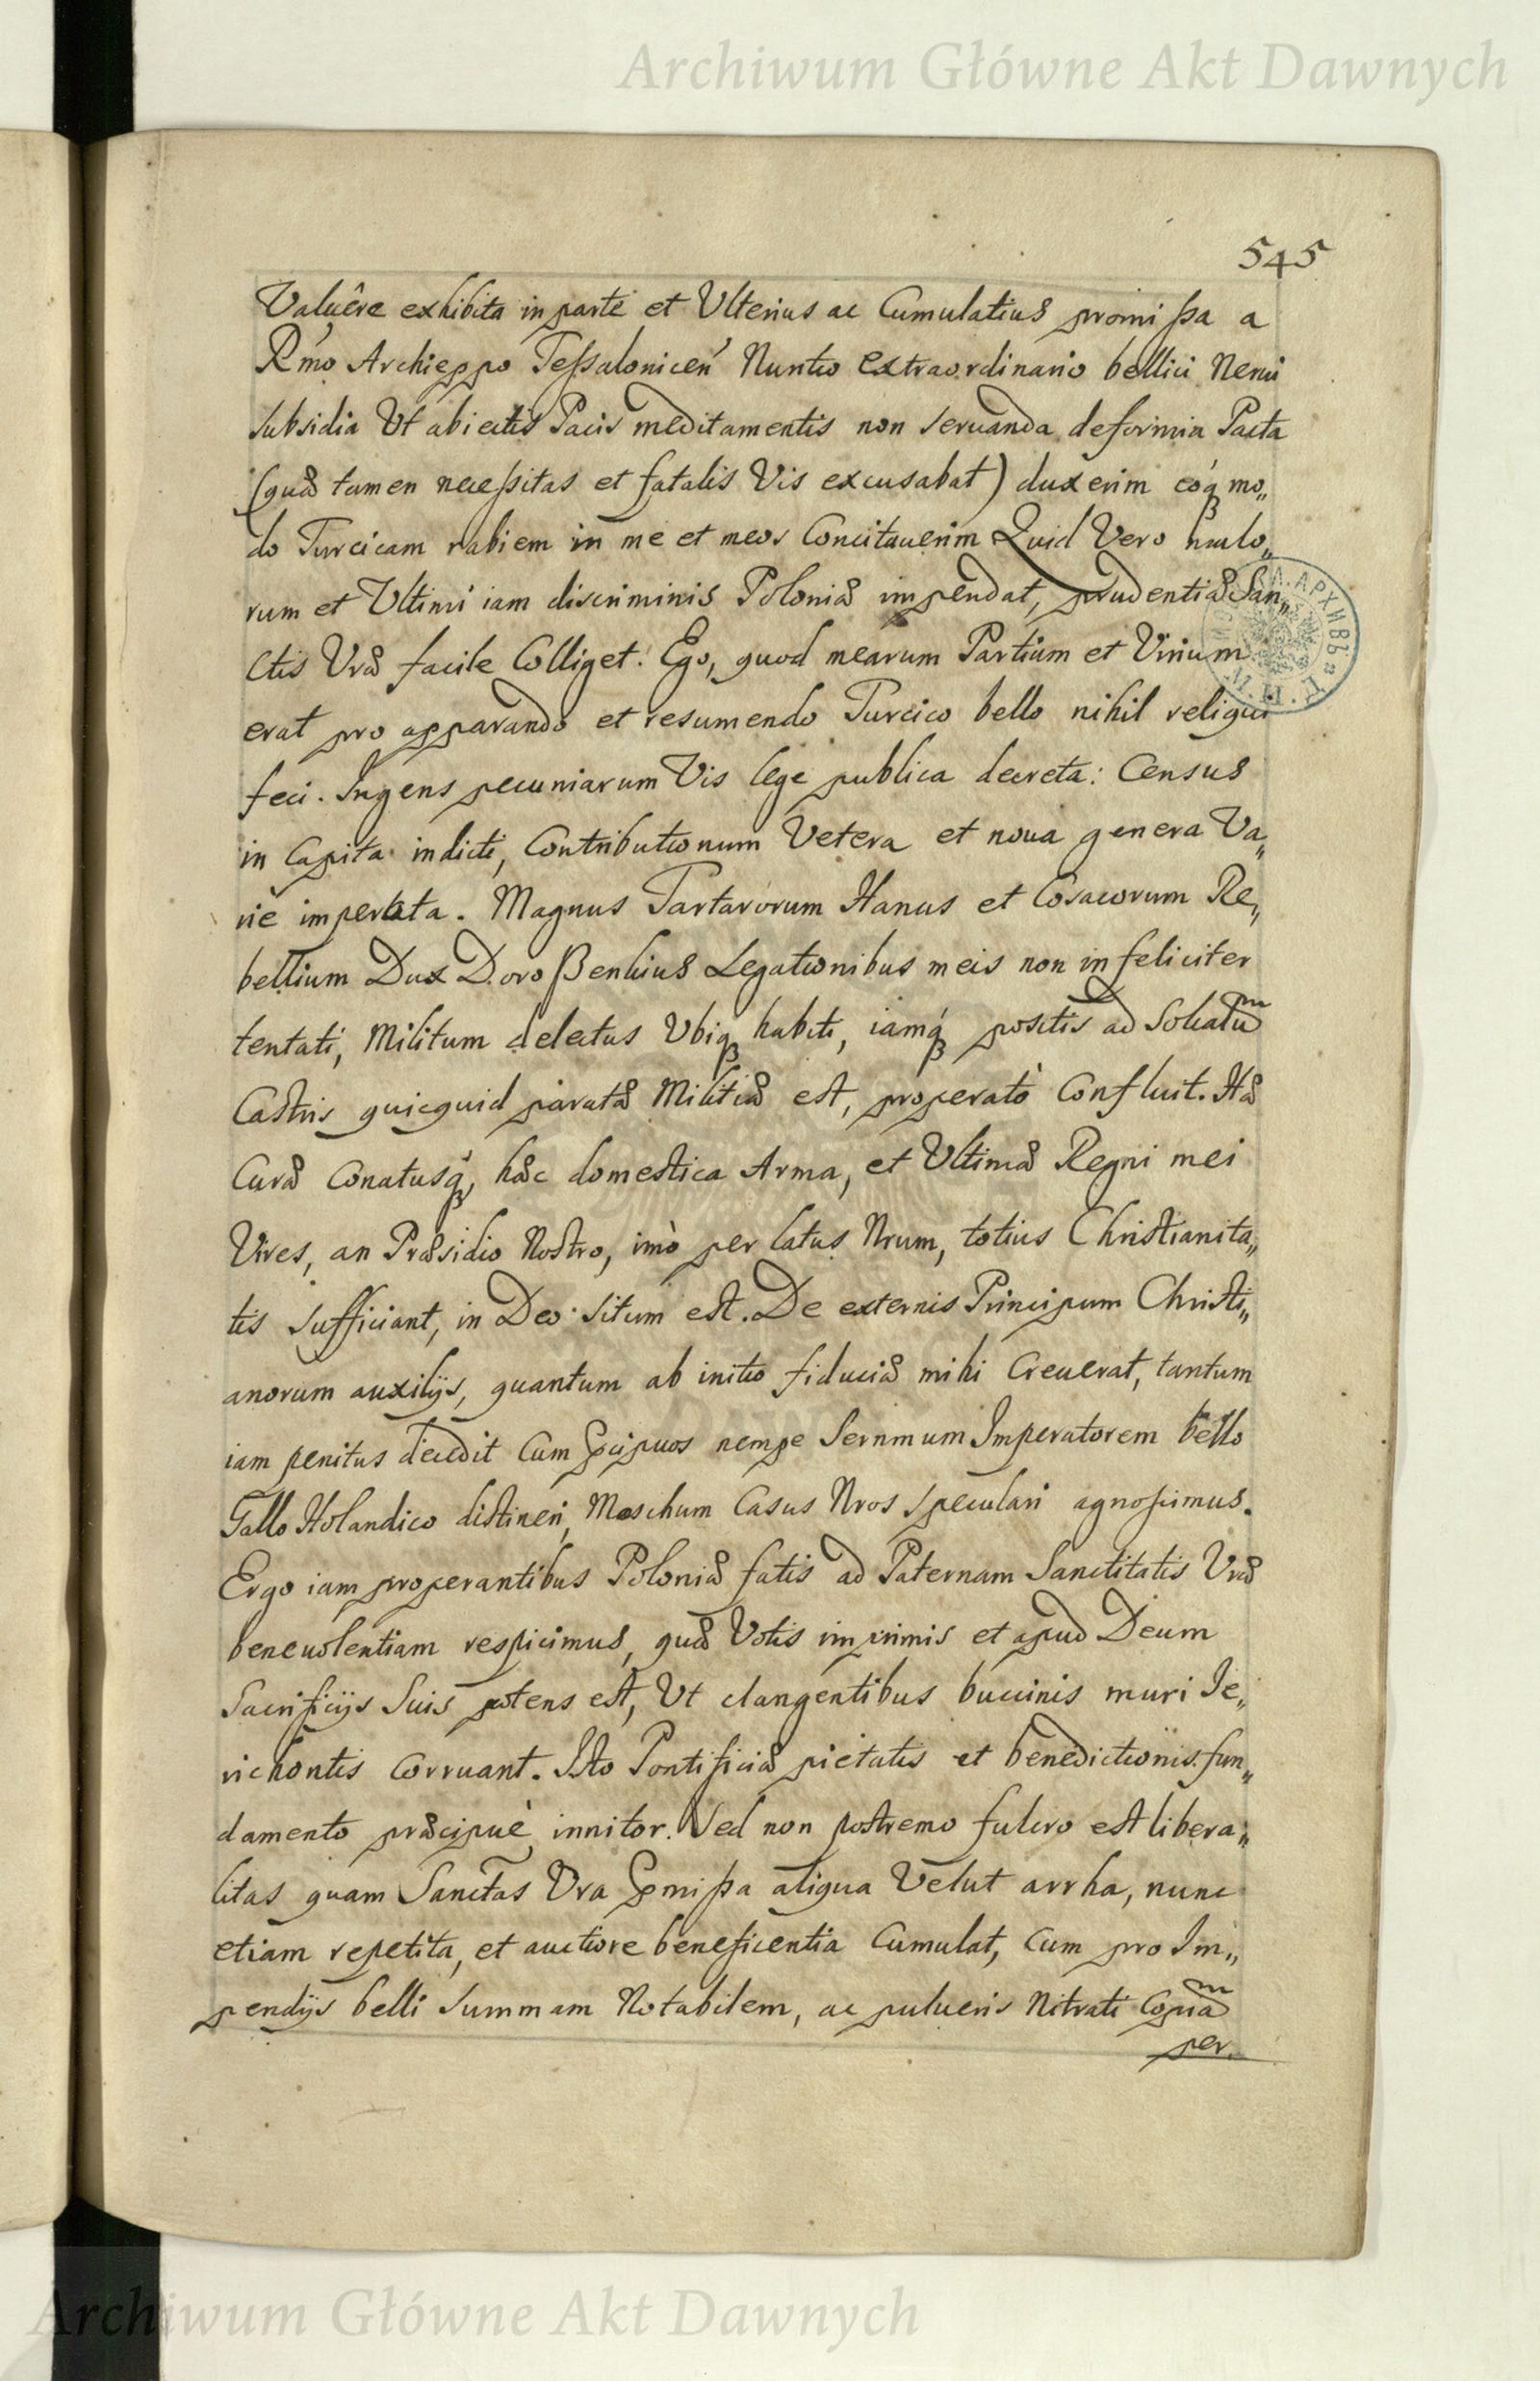 Archiwum Główne Akt Dawnych
545
Valuêre exhibita in parte et Vlterius ac Cumulatius promißa a
Rm̃o Archieppo Teßalonicen̄ Nuntio extraordinario bellici Nerui
subsidia Vt abiectis Pacis meditamentis non seruanda deformia Pacta
(quæ tamen neceßitas et fatalis Vis excusabat) duxerim eoq́ mo„
do Turcicam rabiem in me et meos Concitauerim Quid Vero malo„
rum et Vltimi iam discriminis Poloniæ impendat, prudentia San„
ctis Vræ facile Colliget. Ego, quod mearum Partium et Virium
erat pro apparando et resumendo Turcico bello nihil reliqui
feci. Ingens pecuniarum Vis lege publica decreta: Census
in Capita indicti, Contributionum Vetera et noua genera Va„
rie imperata. Magnus Tartarorum Hanus et Cosacorum Re„
bellium Dux Doroßenkius Legationibus meis non infeliciter
tentati, Militum delectus Vbiq habiti, iamq́ positis ad Sokaliũ
Castris quicquid paratæ Militiæ est, properatò Confluit. Hæ
Curæ Conatusq́, hæc domestica Arma, et Vltimæ Regni mei
Vires, an Præsidio Nostro, imò per latus Nrum, totius Christianita„
tis Sufficiant, in Deo Situm est. De externis Principum Christi„
anorum auxilijs, quantum ab initio fiduciæ mihi Creuerat, tantum
iam penitus decedit Cum Præcipuos nempe Sernmum Imperatorem bello
Gallo Holandico distineri, Moschum Casus Nros speculari agnoscimus.
Ergo iam properantibus Poloniæ fatis ad Paternam Sanctitatis Vræ
beneuolentiam respicimus, quæ Votis imprimis et apud Deum
Sacrificijs Suis potens est, Vt clangentibus buccinis muri Je„
richontis Corruant. Isto Pontificiæ pietatis et benedictionis fun„
damento præcipuè innitor. Sed non postremo fulcro est libera„
litas quam Sanctas Vra Præmißa aliqua Velut arrha, nunc
etiam repetita, et auctiore beneficentia Cumulat, Cum pro Im„
pendijs belli Summam Notabilem, ac pulueris Nitrati Copiã
per
Archiwum Główne Akt Dawnych